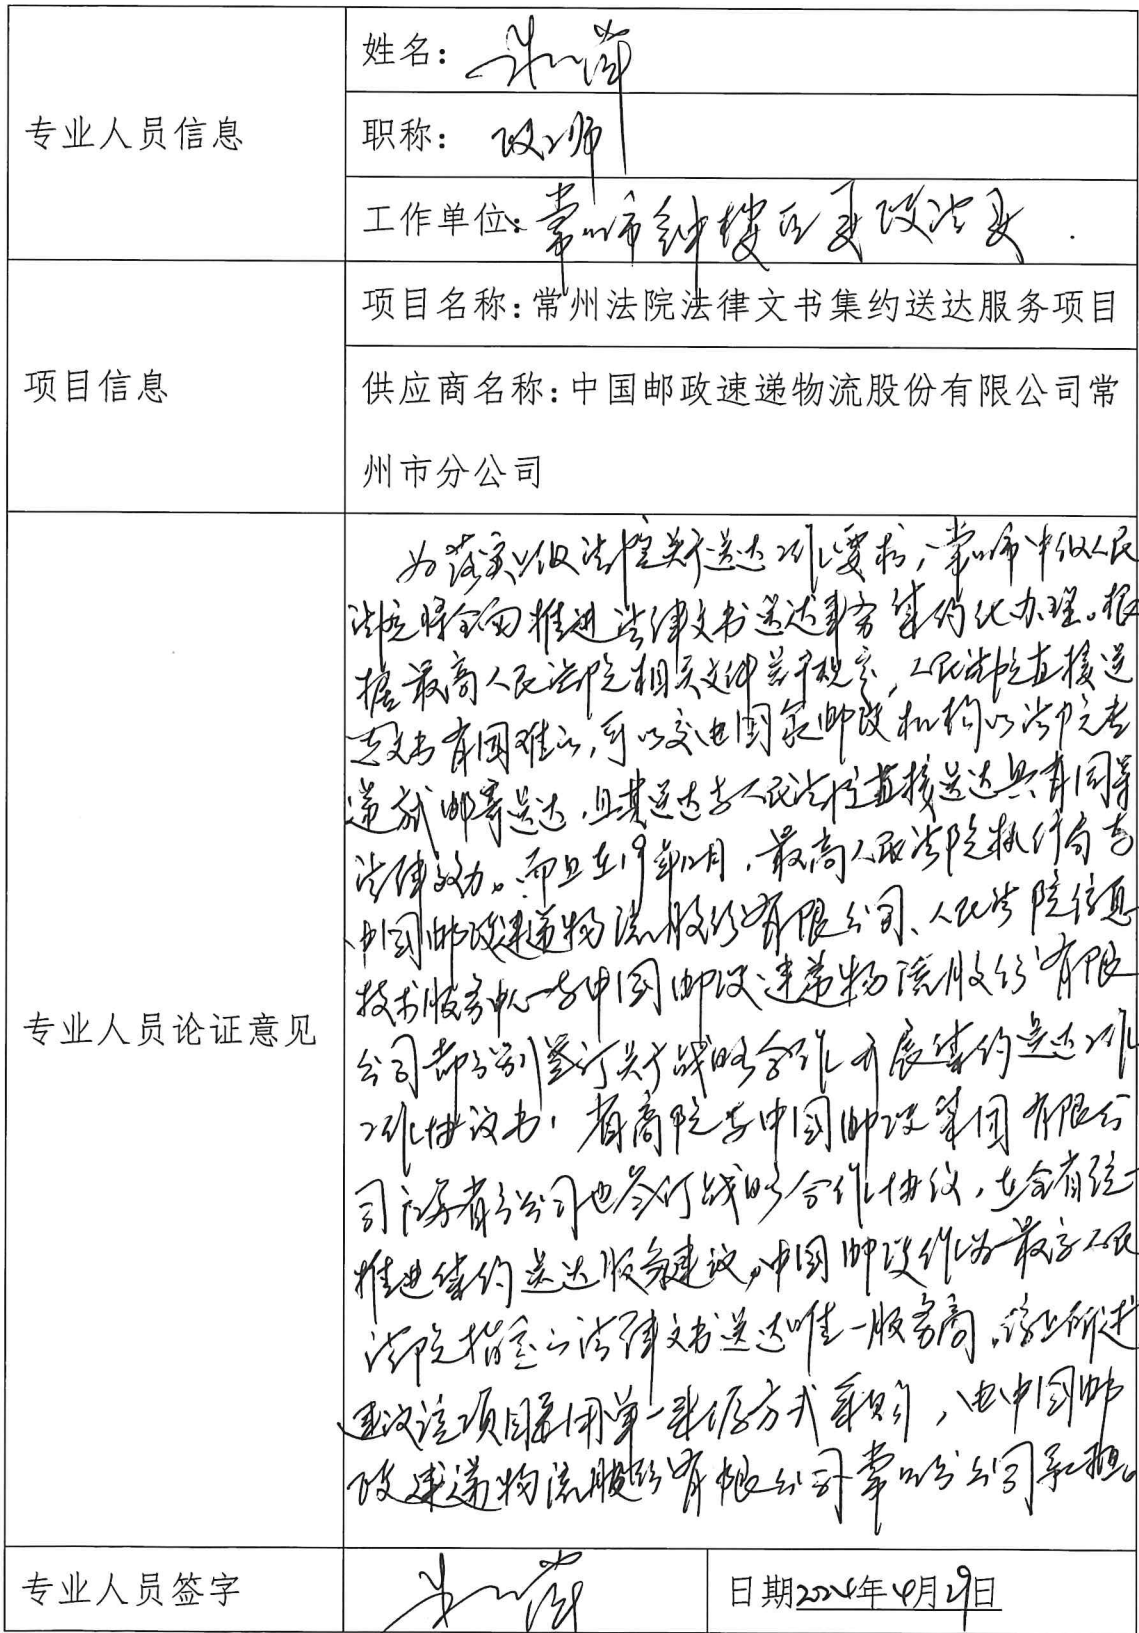 专业人员信息
姓名：
职称：政工师
工作单位：常州市钟楼区
项目信息
项目名称：常州法院法律文书集约送达服务项目
供应商名称：中国邮政速递物流股份有限公司常
州市分公司
专业人员论证意见
为落实上级法院关于送达工作要求，常州市中级人民
法院将全面推进法律文书送达事务集约化办理。根
据最高人民法院相关文件若干规定，人民法院直接送
达文书有困难的，可以交由国家邮政机构以法院专
递 邮寄送达，且其送达与人民法院直接送达具有同等
法律效力。而且在19年12月，最高人民法院执行局与
中国邮政速递物流股份有限公司、人民法院信息
技术服务中心与中国邮政速递物流股份有限
公司都分别签订关于战略合作开展集约送达工作
工作协议书，省高院与中国邮政集团有限公
司江苏省分公司也签订战略合作协议，在全省统一
推进集约送达服务建设，中国邮政作为最高人民
法院指定的法律文书送达唯一服务商，综上所述
建议该项目采用单一来源方式采购，由中国邮
政速递物流股份有限公司常州分公司承担。
专业人员签字
日期2024年4月29日